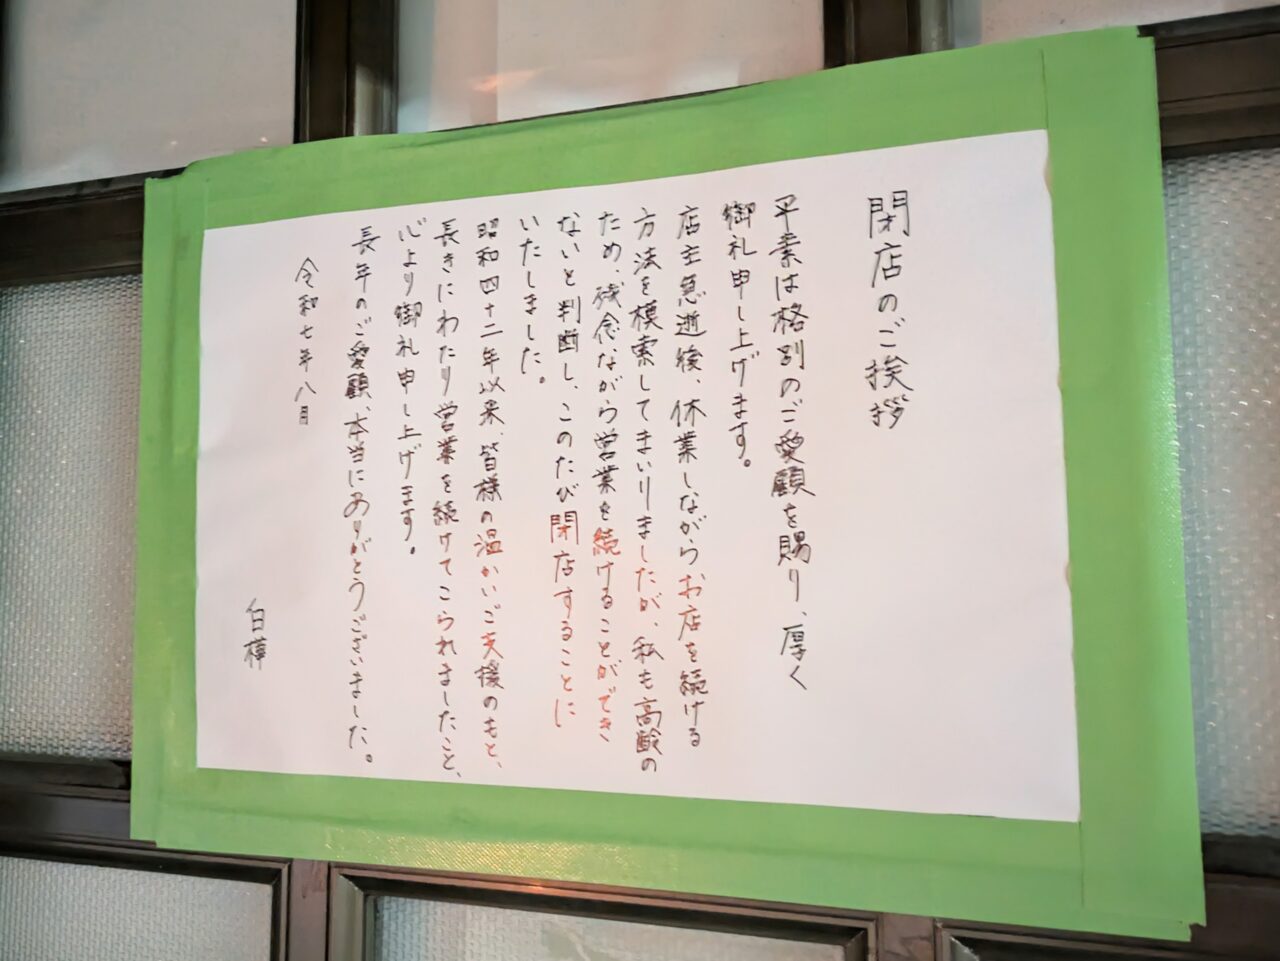 閉店のご挨拶
平素は格別のご愛顧を賜り、厚く
御礼申し上げます。
店主急逝後、休業しながらお店を続ける
方法を模索してまいりましたが、私も高齢の
ため、残念ながら営業を続けることができ
ないと判断し、このたび閉店することに
いたしました。
昭和四十二年以来、皆様の温かいご支援のもと、
長きにわたり営業を続けてこられましたこと、
心より御礼申し上げます。
長年のご愛顧、本当にありがとうございました。
令和七年八月
白樺